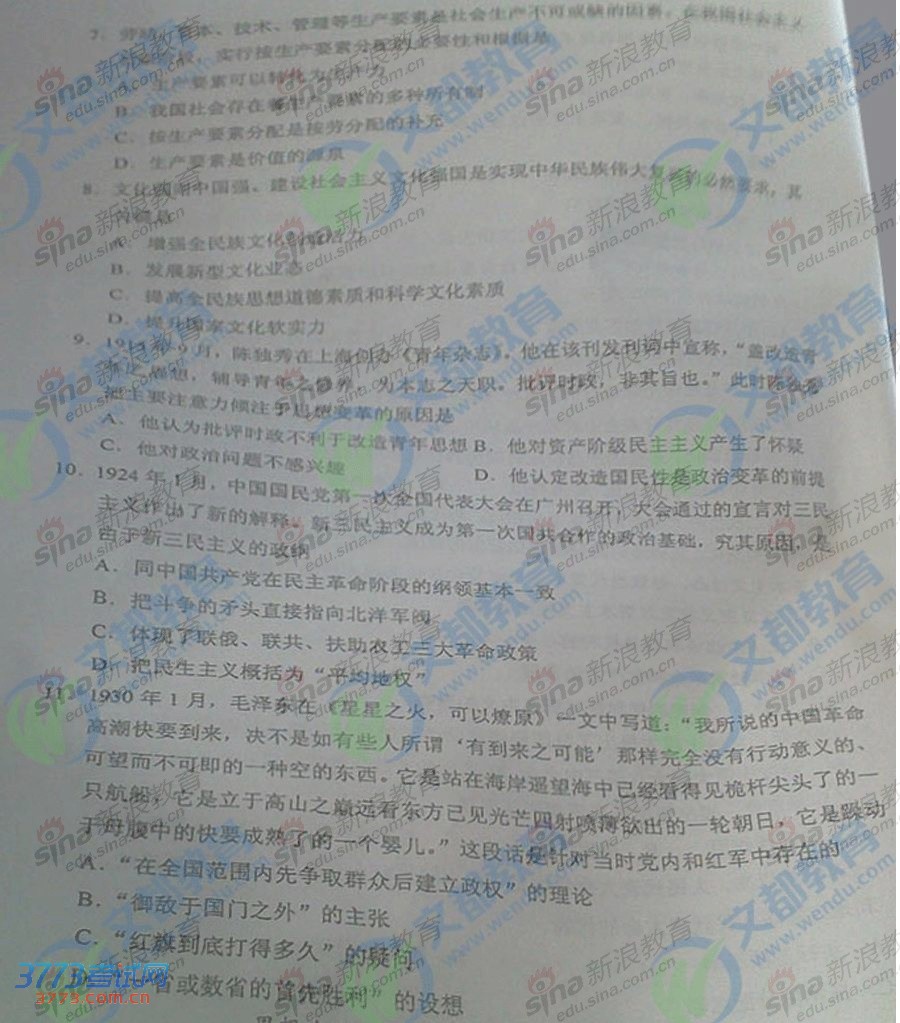 7. 劳动、资本、技术、管理等生产要素是社会生产不可或缺的因素，在我国社会主义
实行按生产要素分配的必要性和根据是
生产要素可以转化为生产力
B. 我国社会存在着生产要素的多种所有制
C. 按生产要素分配是按劳分配的补充
D. 生产要素是价值的源泉
8. 文化强国中国强、建设社会主义文化强国是实现中华民族伟大复兴的必然要求，其
关键是
A. 增强全民族文化创造活力
B. 发展新型文化业态
C. 提高全民族思想道德素质和科学文化素质
D. 提升国家文化软实力
9. 1915 年 9 月，陈独秀在上海创办《青年杂志》。他在该刊发刊词中宣称，“盖改造青
年之思想，辅导青年之修养，为本志之天职。批评时政，非其旨也。”此时陈独秀
把主要注意力倾注于思想变革的原因是
A. 他认为批评时政不利于改造青年思想 B. 他对资产阶级民主主义产生了怀疑
C. 他对政治问题不感兴趣 D. 他认定改造国民性是政治变革的前提
10. 1924 年 1 月，中国国民党第一次全国代表大会在广州召开，大会通过的宣言对三民
主义作出了新的解释。新三民主义成为第一次国共合作的政治基础，究其原因，是
由于新三民主义的政纲
A. 同中国共产党在民主革命阶段的纲领基本一致
B. 把斗争的矛头直接指向北洋军阀
C. 体现了联俄、联共、扶助农工三大革命政策
D. 把民生主义概括为“平均地权”
11. 1930 年 1 月，毛泽东在《星星之火，可以燎原》一文中写道：“我所说的中国革命
高潮快要到来，决不是如有些人所谓‘有到来之可能’那样完全没有行动意义的、
可望而不可即的一种空的东西。它是站在海岸遥望海中已经看得见桅杆尖头了的一
只航船，它是立于高山之巅远看东方已见光芒四射喷薄欲出的一轮朝日，它是躁动
于母腹中的快要成熟了的一个婴儿。”这段话是针对当时党内和红军中存在的
A.“在全国范围内先争取群众后建立政权”的理论
B.“御敌于国门之外”的主张
C.“红旗到底打得多久”的疑问
省或数省的首先胜利”的设想
sina新浪教育
edu.sina.com.cn
文都教育
www.wendu.com
3773考试网
3773.com.cn